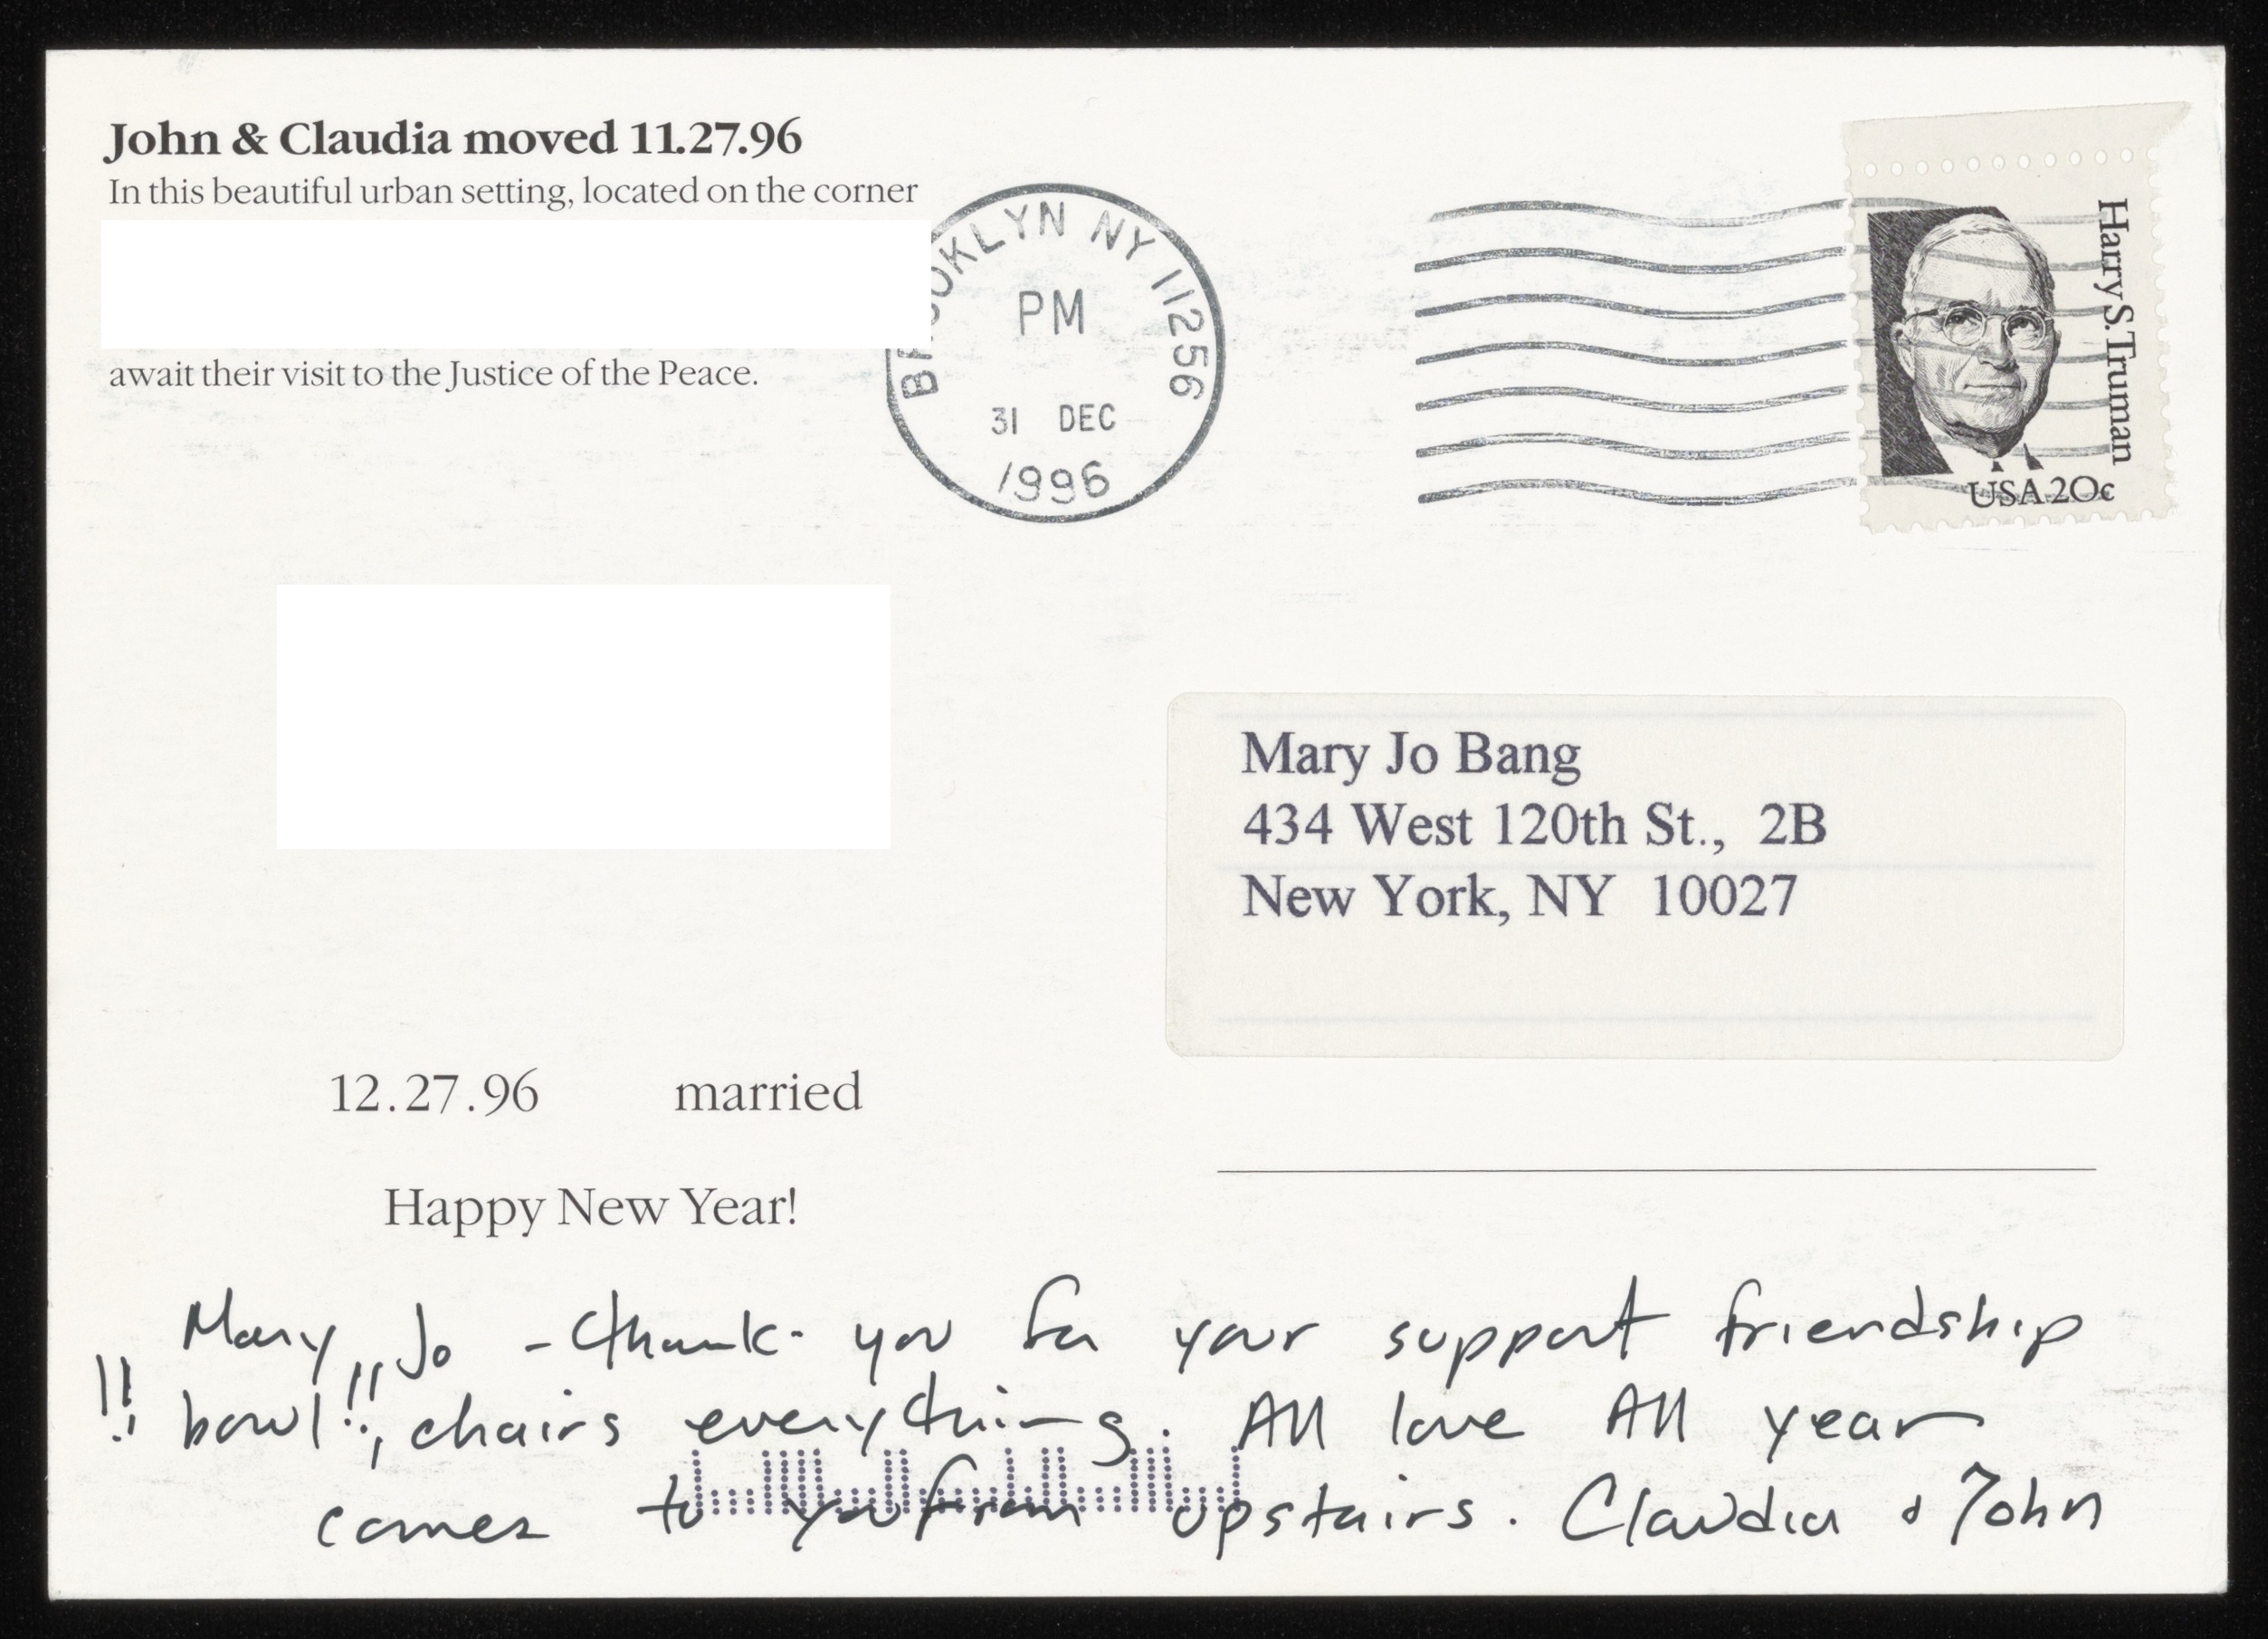 John & Claudia moved 11.27.96
In this beautiful urban setting, located on the corner
await their visit to the Justice of the Peace.
BROOKLYN NY 11256
PM
31 DEC
1996
Harry S. Truman
USA 20c
Mary Jo Bang
434 West 120th St., 2B
New York, NY 10027
12.27.96 married
Happy New Year!
Mary Jo - thank- you for your support friendship
!! bowl!!, chairs everything. All love All year
comes to you from upstairs. Claudia & John